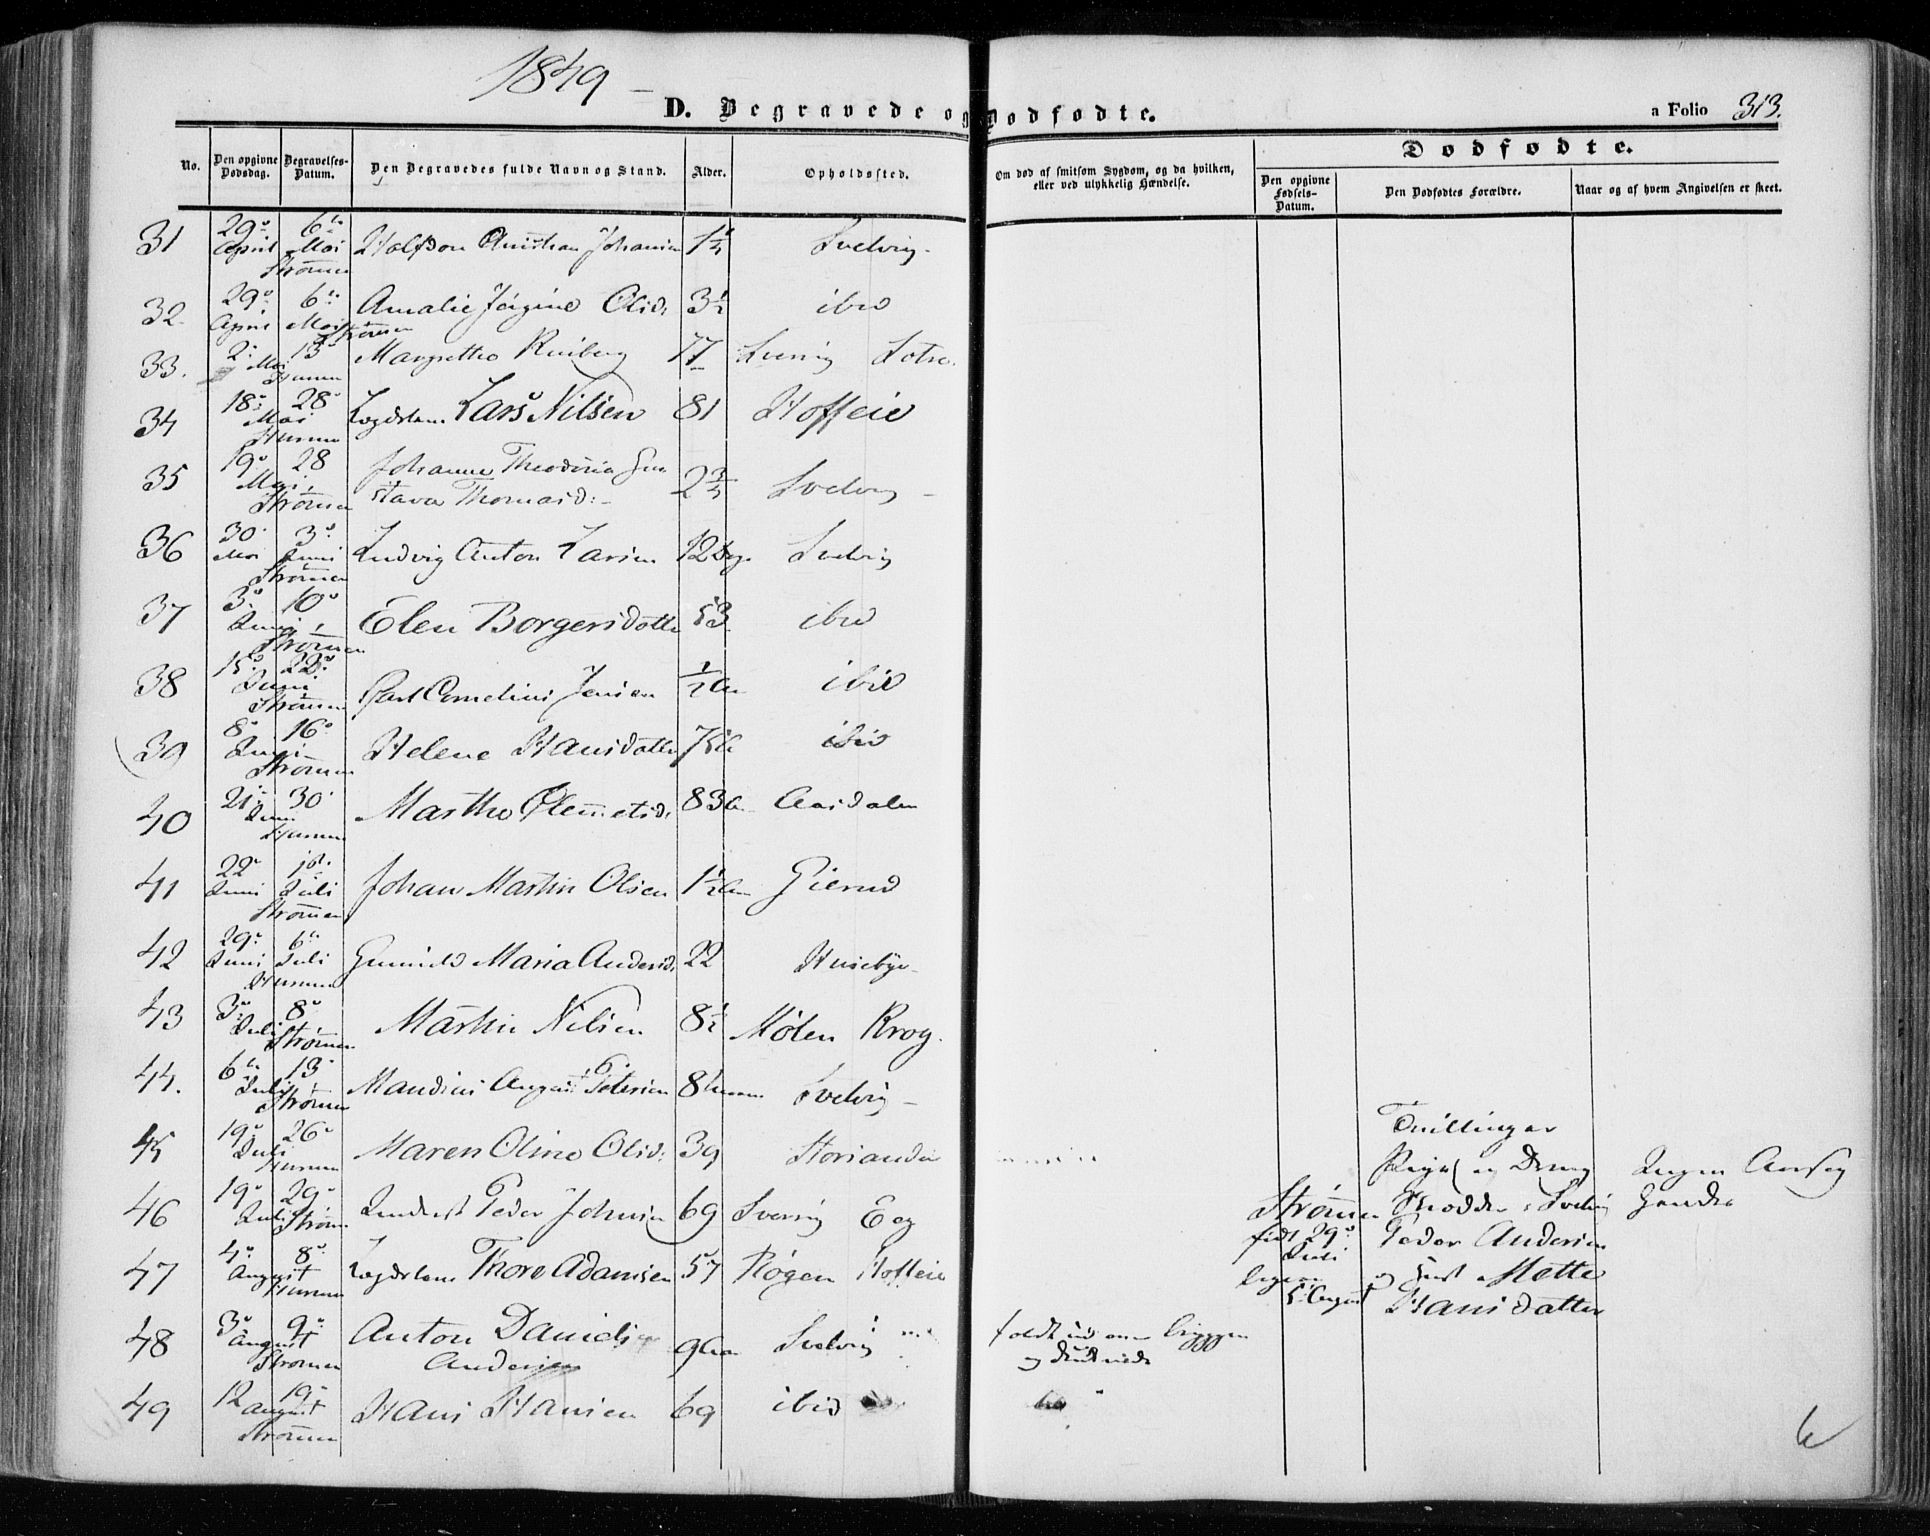 1849
D. Begravede og Dødfødte.
a Folio 313.
No. Den opgivne Dødsdag. Begravelses-Datum. Den Begravedes fulde Navn og Stand. Alder. Opholdssted. Om død af smitsom Sygdom, og da hvilken, eller ved ulykkelig Hændelse.
Dødfødte.
Den opgivne Fødsels-Datum. Den Dødfødtes Forældre. Naar og af hvem Angivelsen er skeet.
31 29 April 6te Mai Strømm Christian Johansen 1¼ Svelvig
32. 29 April 6te Mai Strømm Amalie Jørgine Olsd: 3½ ibid
33. 2 Mai 13 Hurum Margrethe 77 Svelvig
34 18 Mai 28 Hurum Lægdslem Lars Nilsen 81 Hoffeie
35 19 Mai 28 Strømm Johanne Theodoria Gu
stava Thomasd: 2¾ Svelvig
36 30 Mai 3 Juni Strømm Ludvig Anton Larsen 12 Dage Svelvig
37 3 Juni 10 Strømm Elen Borgersdatter 53 ibid
38 15 Juni 22 Strømm Carl Cornelius Jensen ½ ibid
39 8 Juni 16 Strømm Helene Hansdatter 75 ibid
40 21 Juni 30 Hurum Marthe Clemetsd: 83 Aasdalen
41 22 Juni 1st Juli Strømm Johan Martin Olsen 1½ Gierud
42 29 Juni 6te Juli Hurum Gunnild Maria Andersd: 22 Husebye
43 3 Juli 8 Strømm Martin Nilsen 8½ Mølen Krog.
44. 6te Juli 13 Strømm August Petersen 8 Svelvig
45 19 Juli 26 Hurum Maren Oline Olsd: 39 Storsander
46 19 Juli 29 Strømm Peder Johnsen 69 Eeg
47 4 August 8 Hurum Lægdslem Thore Adamsen 57 Røgen Hoffeie
48 3 August 9 Strømm Anton Daniel
Andersen 9 Svelvig
49 12 August 19 Strømm Hans Hansen 69 ibid
Tvillinger
Pige og Dreng
Strømm Svelvig
født 29 Juli Peder Andersen
og Mette
5 August Hansdatter